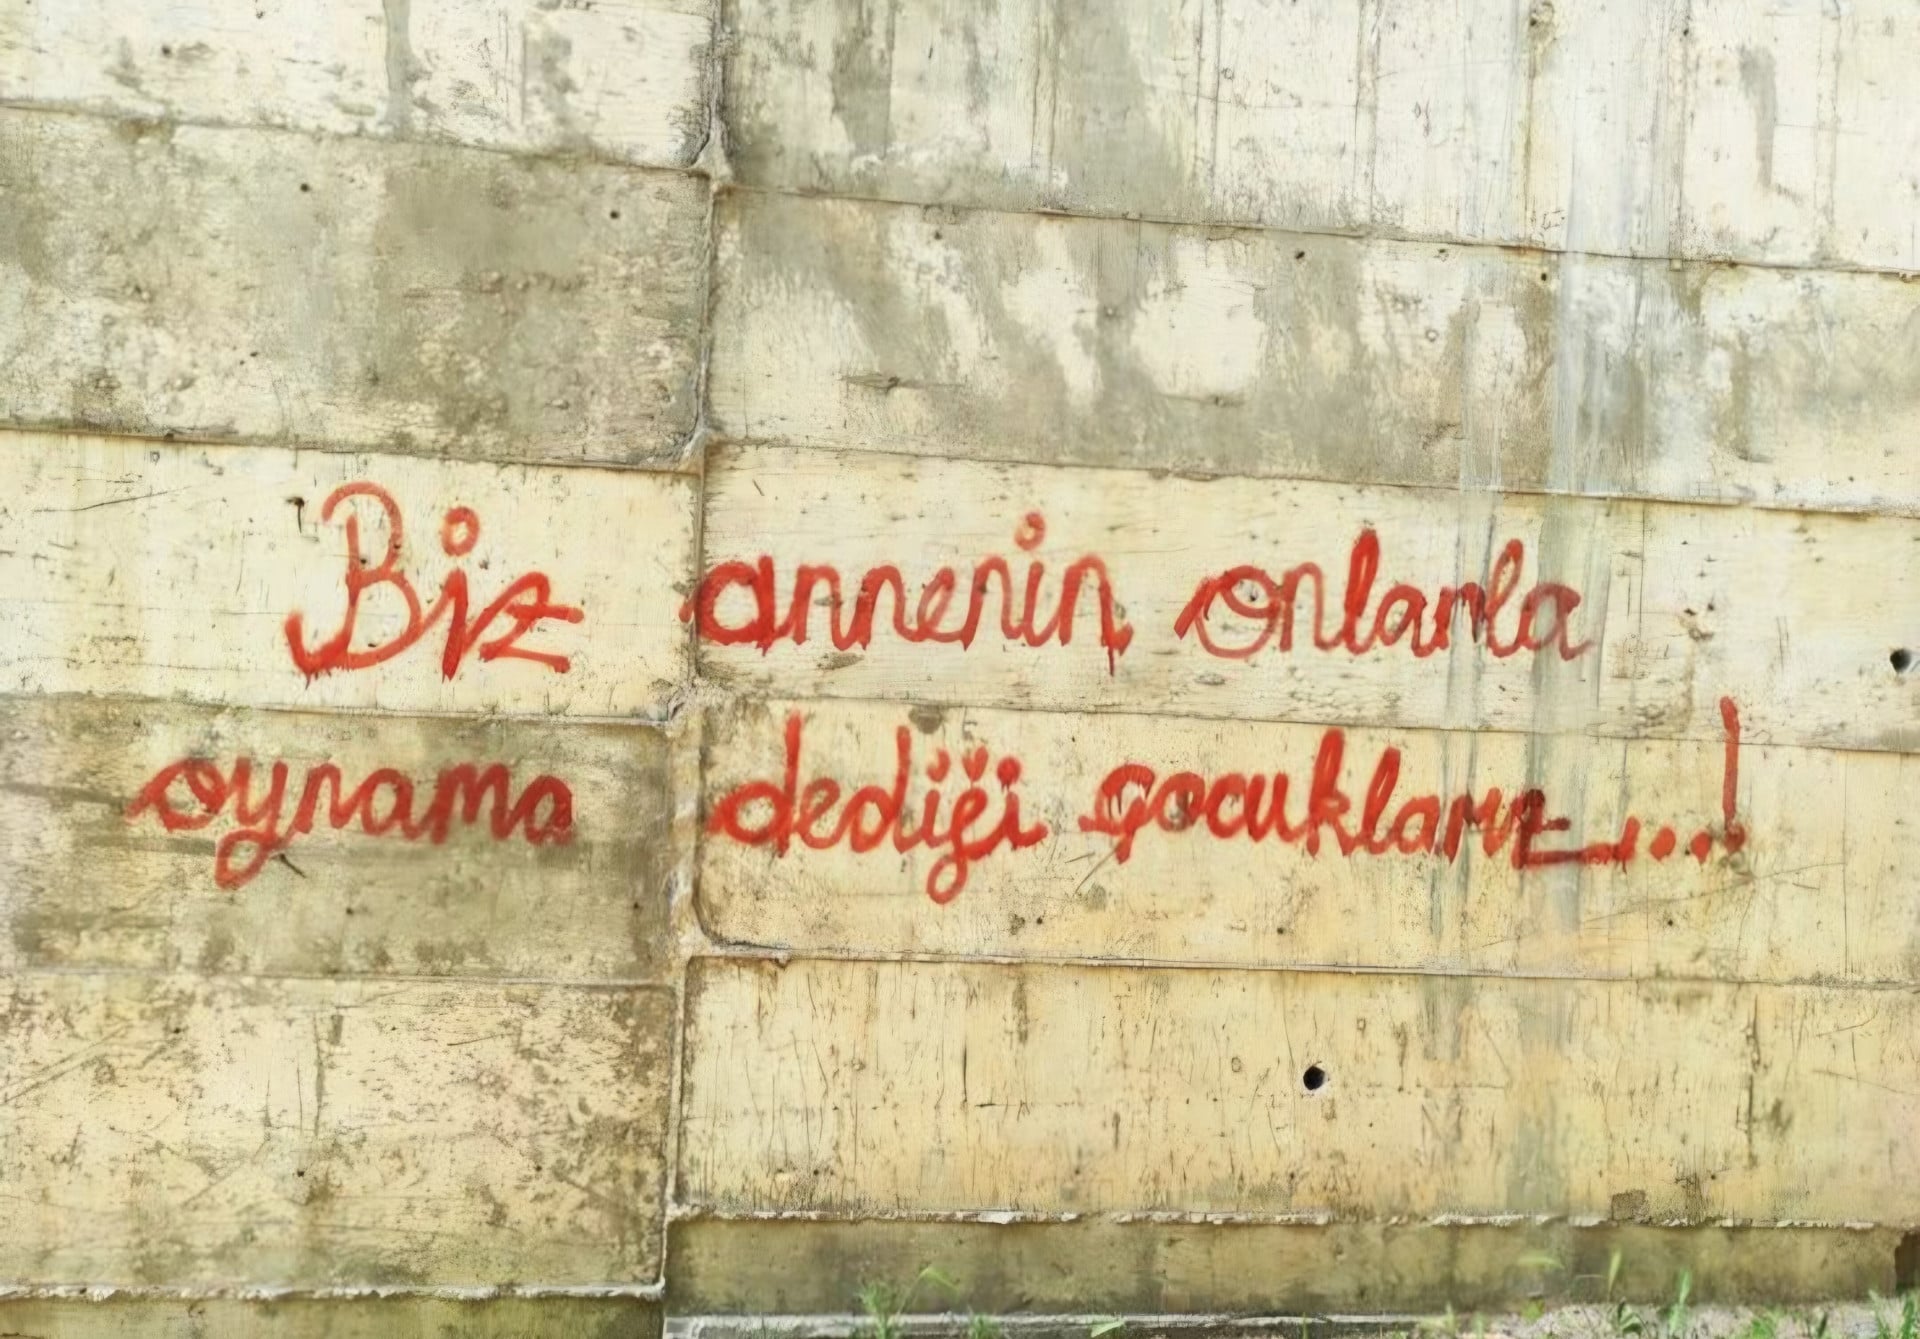 Biz annenin onlarla
oynama dediği çocuklarız...!